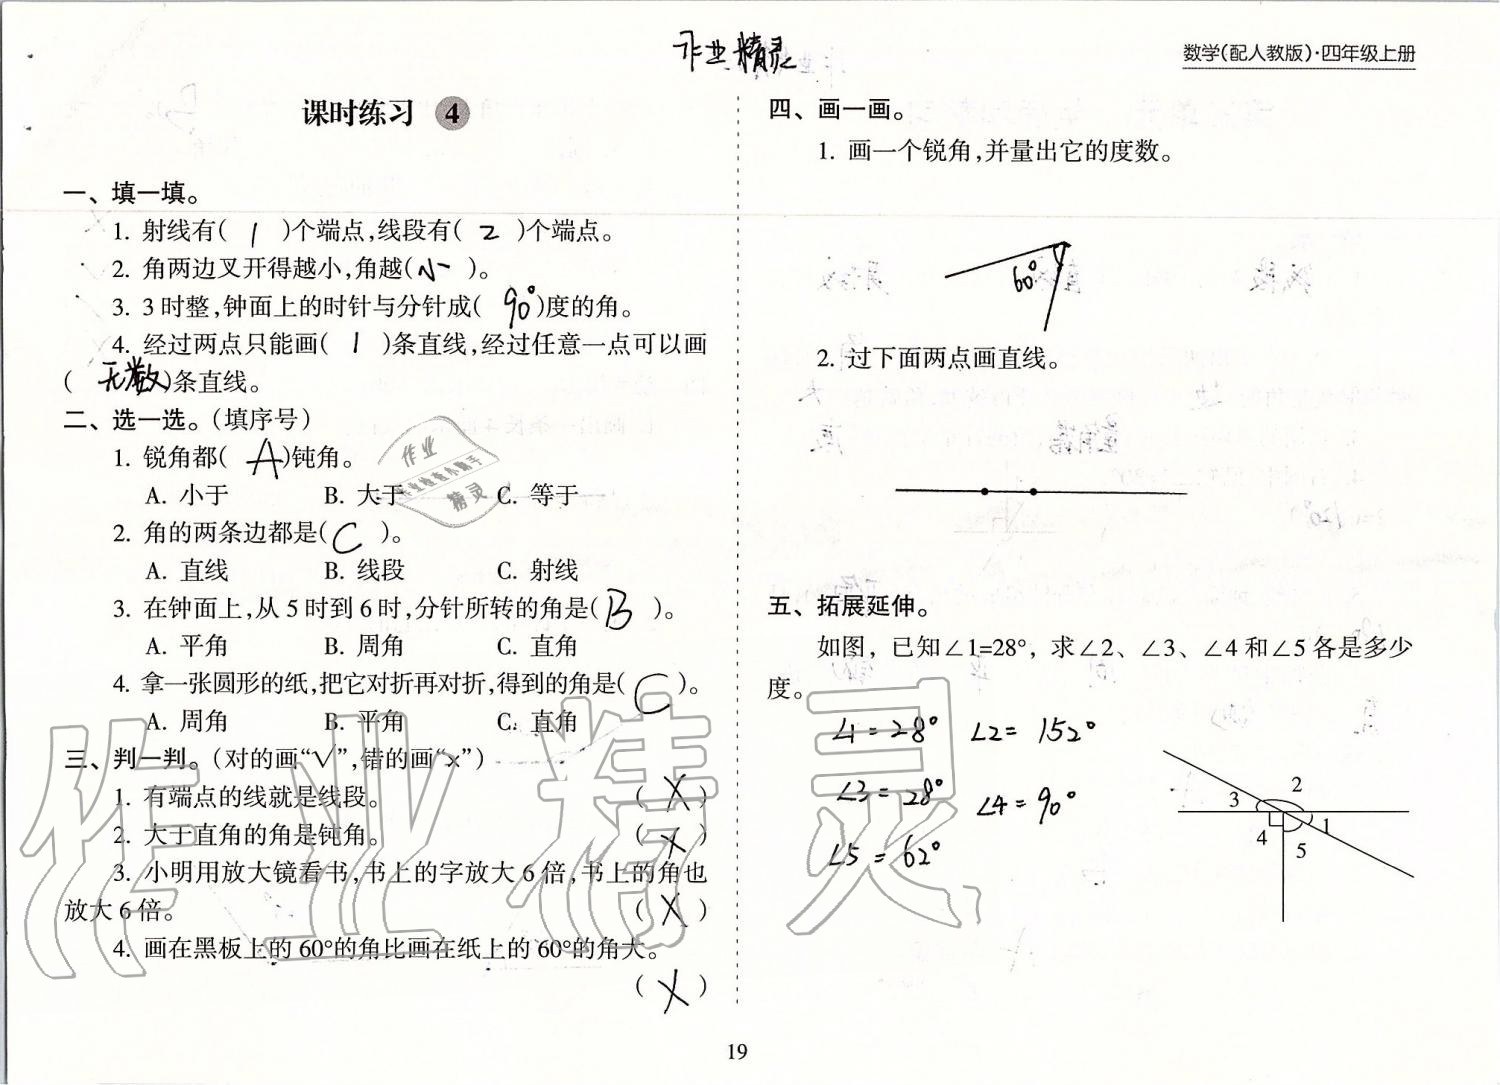 作业精灵
数学(配人教版)·四年级上册
课时练习 4
一、填一填。
1. 射线有( 1 )个端点,线段有( 2 )个端点。
2. 角两边叉开得越小,角越(小)。
3. 3时整,钟面上的时针与分针成( 90° )度的角。
4. 经过两点只能画( 1 )条直线,经过任意一点可以画
( 无数 )条直线。
二、选一选。(填序号)
1. 锐角都( A )钝角。
A. 小于 B. 大于 C. 等于
2. 角的两条边都是( C )。
A. 直线 B. 线段 C. 射线
3. 在钟面上,从5时到6时,分针所转的角是( B )。
A. 平角 B. 周角 C. 直角
4. 拿一张圆形的纸,把它对折再对折,得到的角是( C )。
A. 周角 B. 平角 C. 直角
三、判一判。(对的画“√”,错的画“×”)
1. 有端点的线就是线段。 ( X )
2. 大于直角的角是钝角。 ( X )
3. 小明用放大镜看书,书上的字放大6倍,书上的角也
放大6倍。 ( X )
4. 画在黑板上的60°的角比画在纸上的60°的角大。
( X )
四、画一画。
1. 画一个锐角,并量出它的度数。
60°
2. 过下面两点画直线。
五、拓展延伸。
如图，已知∠1=28°，求∠2、∠3、∠4和∠5各是多少
度。
∠1=28° ∠2= 152°
∠3=28° ∠4=90°
∠5=62°
2
3
1
4
5
作业
作业检查小助手
精灵
作业精灵
19